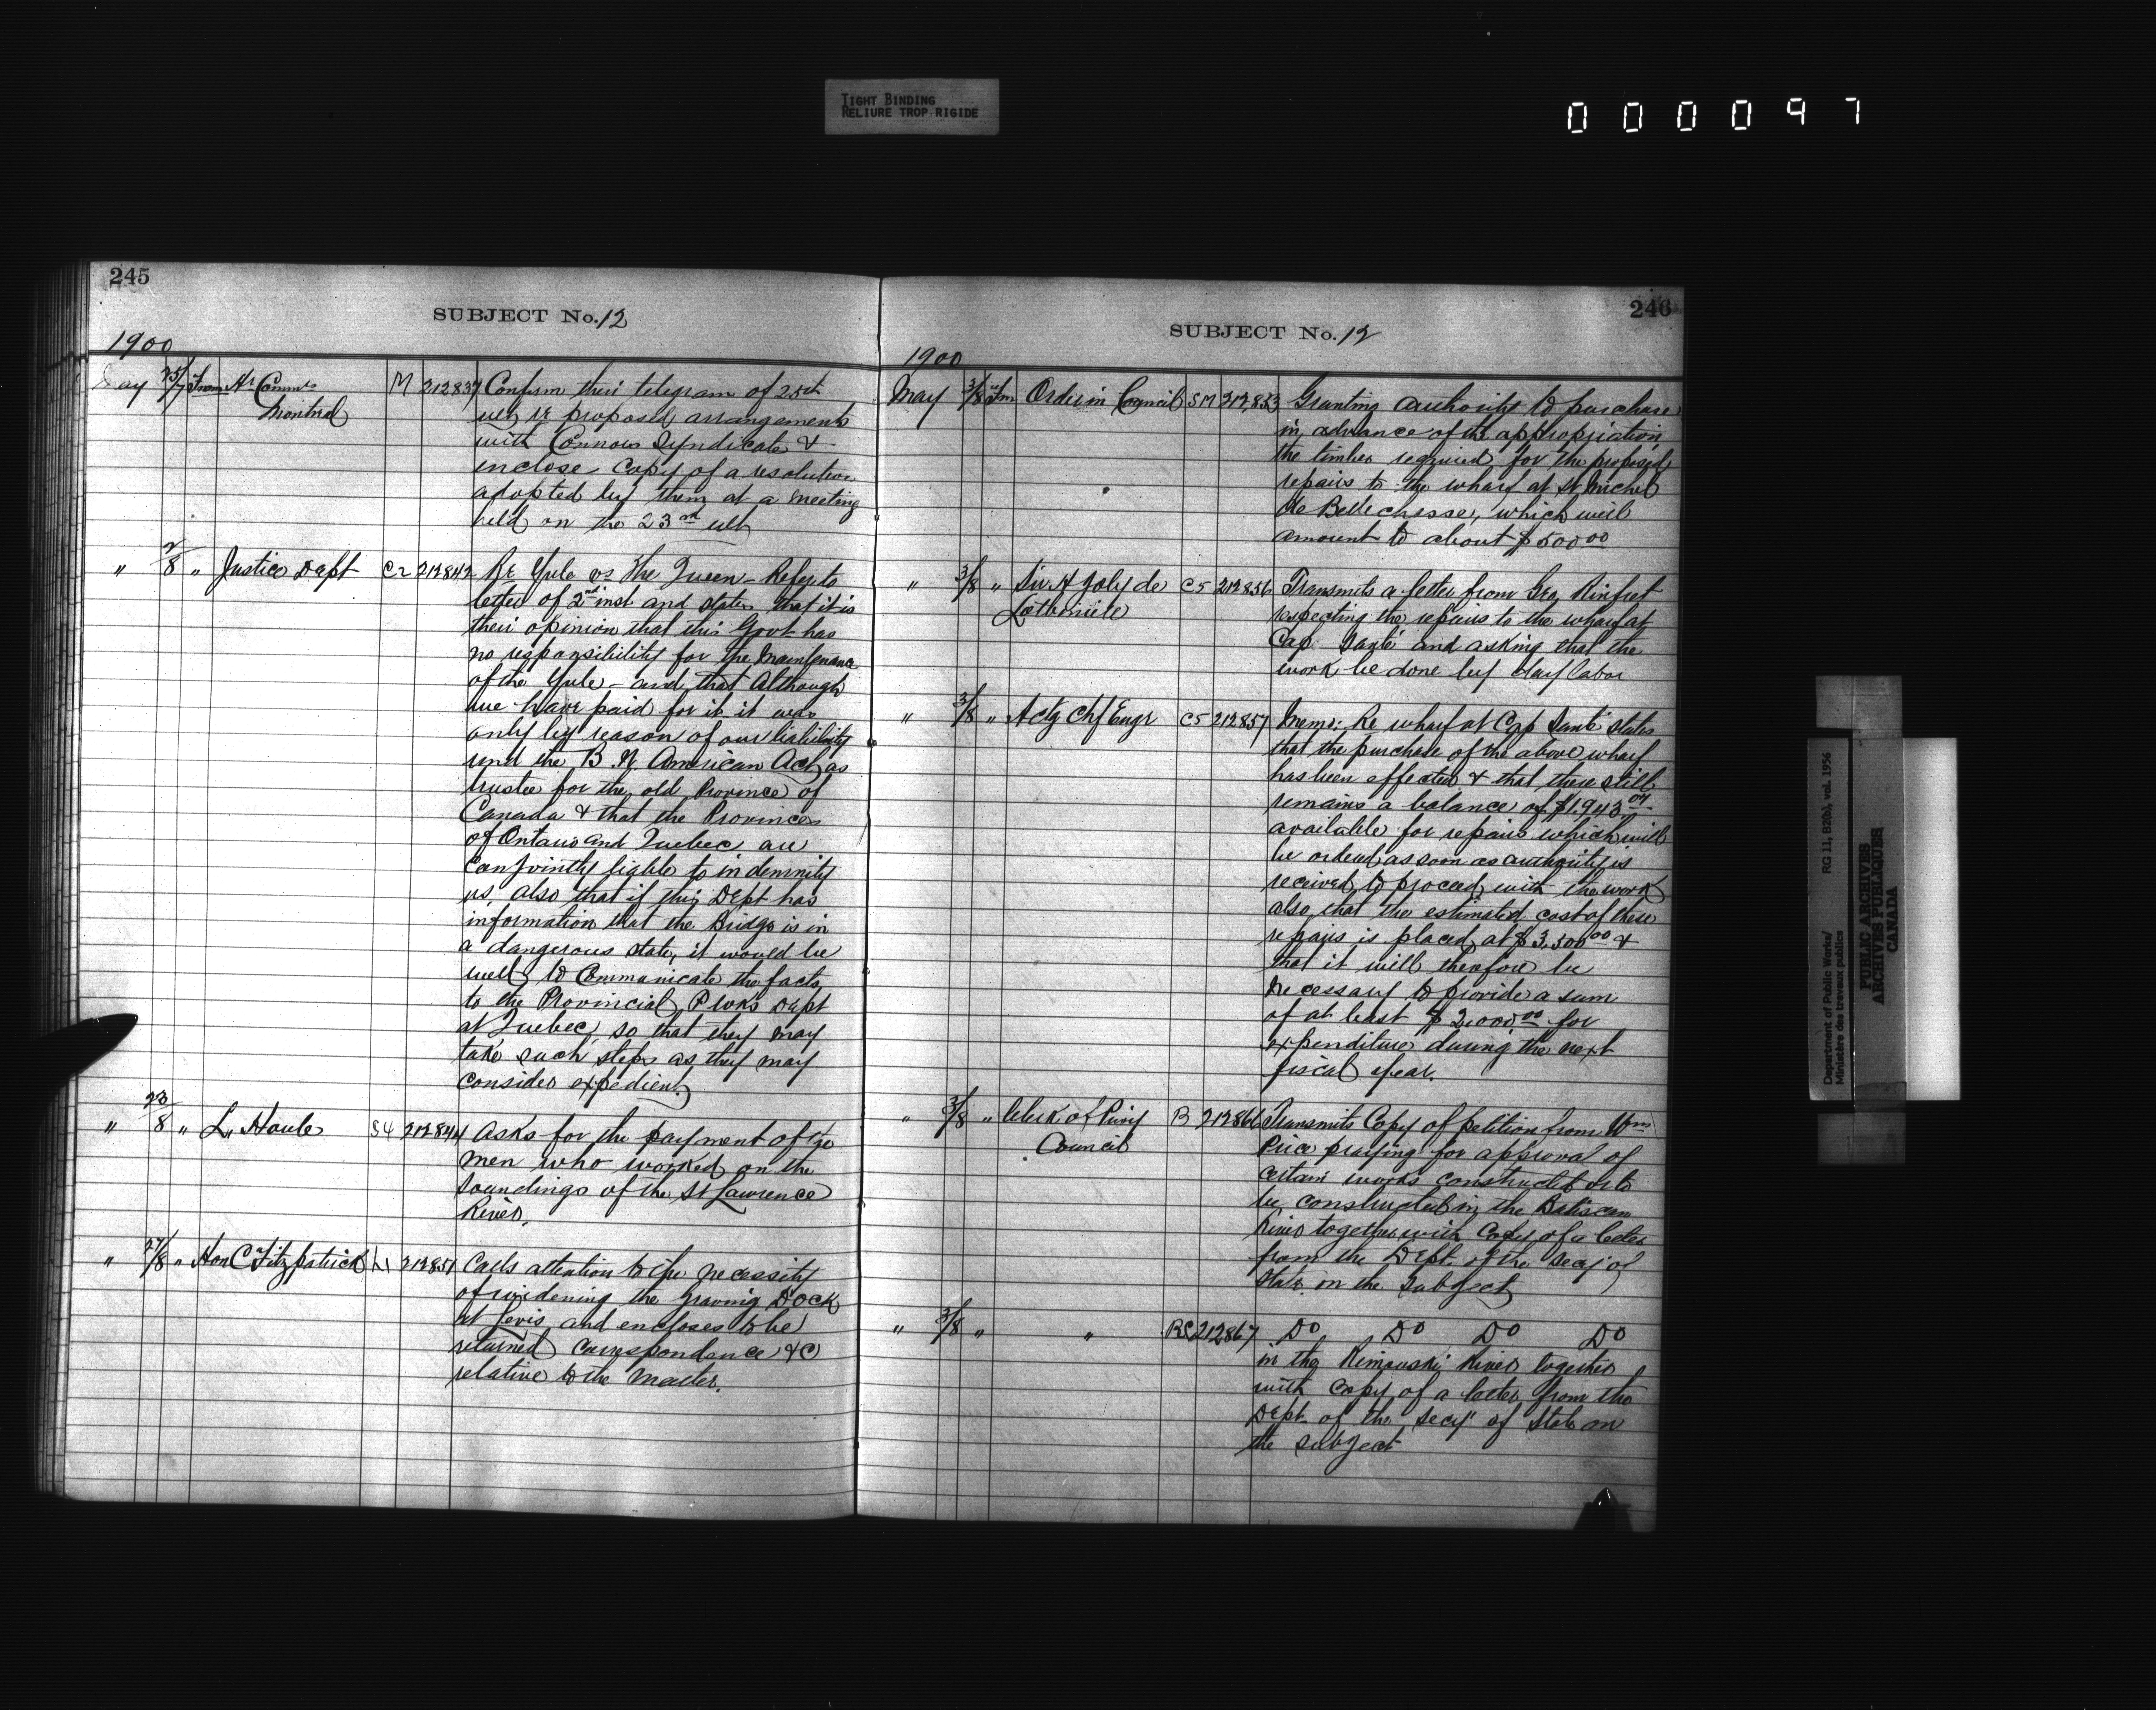 TIGHT BINDING
RELIURE TROP RIGIDE
000097
245
SUBJECT No. 12
1900
May 25/7 From Hr Commrs M 212837 Confirm their telegram of 25th
Montreal
ult re proposed arrangements
with Connors Syndicate &
enclose Copy of a resolution
adopted by them at a meeting
held on the 23rd ult
" 2/8 " Justice Dept C2 212842 Re Yule vs The Queen - Refer to
letter of 2nd inst and states that it is
their opinion that this Govt has
no responsibility for the maintenance
of the Yule - and that Although
we have paid for it it was
only by reason of our liability
und the B. N. American Act, as
trustee for the old Province of
Canada & that the Provinces
of Ontario and Quebec are
conjointly liable to indemnity
us, also that if this Dept has
information that the Bridge is in
a dangerous state, it would be
well to Communicate the facts
to the Provincial P Wks Dept
at Quebec, so that they may
take such steps as they may
consider expedient
" 23/8 " L. Houle S4 212844 Asks for the payment of the
men who worked on the
soundings of the St Lawrence
River.
" 27/8 " Hon C Fitzpatrick L1 212851 Calls attention to the necessity
of widening the Graving Dock
at Levis and encloses to be
returned correspondence &c
relative to the matter.
246
SUBJECT No. 12
1900
May 3/8 Fm Order in Council SM 212,853 Granting authority to purchase
in advance of the appropriation,
the timber required for the proposed
repairs to the wharf at St Michel
de Bellechasse, which will
amount to about $500 00
" 3/8 " Sir H Joly de C5 212856 Transmits a letter from Geo. Rinfret
Lotbiniere
respecting the repairs to the wharf at
Cap Santé and asking that the
work be done by day labor
" 3/8 " Actg Chf Engr C5 212857 Memo: Re wharf at Cap Santé states
that the purchase of the above wharf
has been effected & that there still
remains a balance of $1,943 04
available for repairs which will
be ordered as soon as authority is
received to proceed with the work
also that the estimated cost of these
repairs is placed at $3,500 00 &
that it will therefore be
necessary to provide a sum
of at least $2,000 00 for
expenditure during the next
fiscal year.
" 3/8 " Clerk of Privy B 212866 Transmits Copy of petition from Wm
Council
Price praying for approval of
certain works constructed or to
be constructed in the Batiscan
River together with Copy of a letter
from the Dept. of the Secy of
State on the subject
" 3/8 " " RS 212867 Do Do Do Do
in the Rimouski River together
with copy of a letter from the
Dept of the Secy of State on
the subject
Department of Public Works/ RG 11, B2(b), vol. 1956
Ministère des travaux publics
PUBLIC ARCHIVES
ARCHIVES PUBLIQUES
CANADA